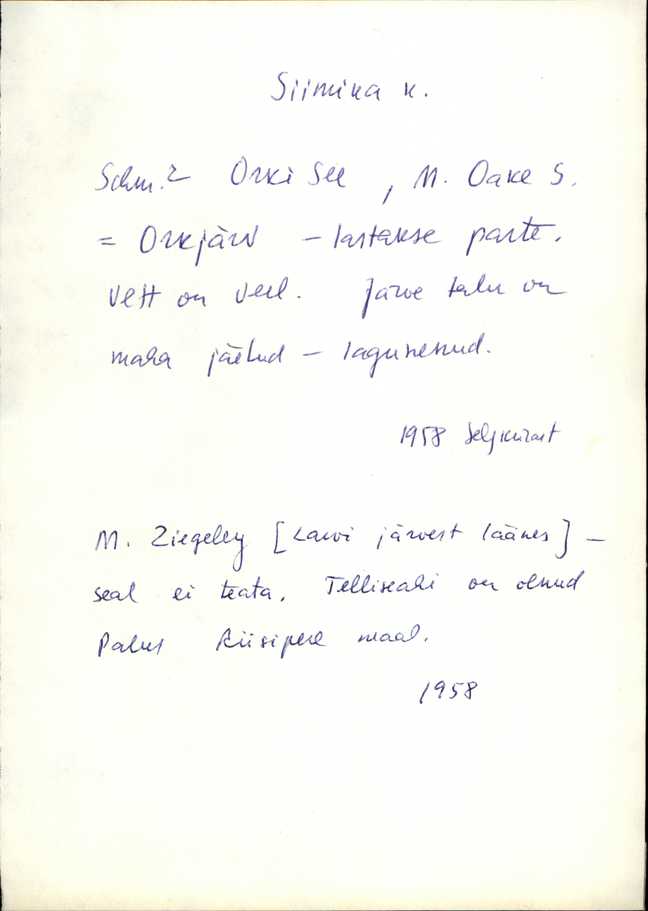 Siimika k.
Schm.2 Orki See, M. Oake S.
= Orkjärv – lastakse parte.
Vett on veel. Järve talu on
maha jäetud – lagunenud.
1958
M. Ziegeley [Kaevi järvest läänes] –
seal ei teata. Telliseahi on olnud
Palus Riisipere maal.
1958